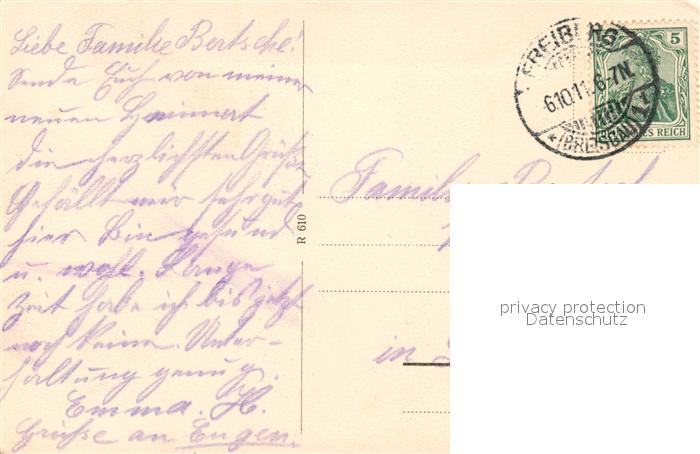 Liebe Familie Bertsche!
Sende Euch von meiner
neuen Heimat
die herzlichsten Grüße
Gefällt mir sehr gut
hier Bin gesund
u. wohl. Lange
Zeit habe ich bis jetzt
noch keine. Unter-
haltung genug.
Emma. H.
Grüße an Eugen.
R 610
FREIBURG
6.10.11. 6-7N.
*(BREISGAU)1
5
DEUTSCHES REICH
Familie
in
privacy protection
Datenschutz